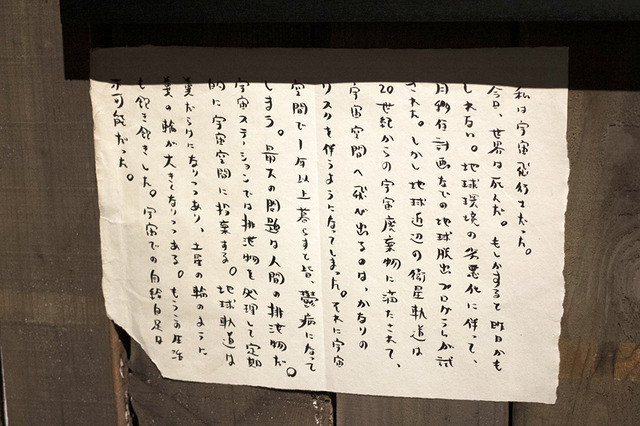 私は宇宙飛行士だった。
今日、世界は死んだ。もしかすると昨日かも
しれない。地球環境の劣悪化に伴って、
月移住計画などの地球脱出プログラムが試
された。しかし地球近辺の衛星軌道は
20世紀からの宇宙廃棄物に満たされて、
宇宙空間へ飛び出るのは、かなりの
リスクを伴うようになってしまった。それに宇宙
空間で1年以上暮らすと皆、鬱病になって
しまう。最大の問題は人間の排泄物だ。
宇宙ステーションでは排泄物を処理して定期
的に宇宙空間に投棄する。地球軌道は
糞だらけになりつつあり、土星の輪のように
糞の輪が大きくなりつつある。もうこの生活
も飽き飽きした。宇宙での自給自足は
不可能だった。